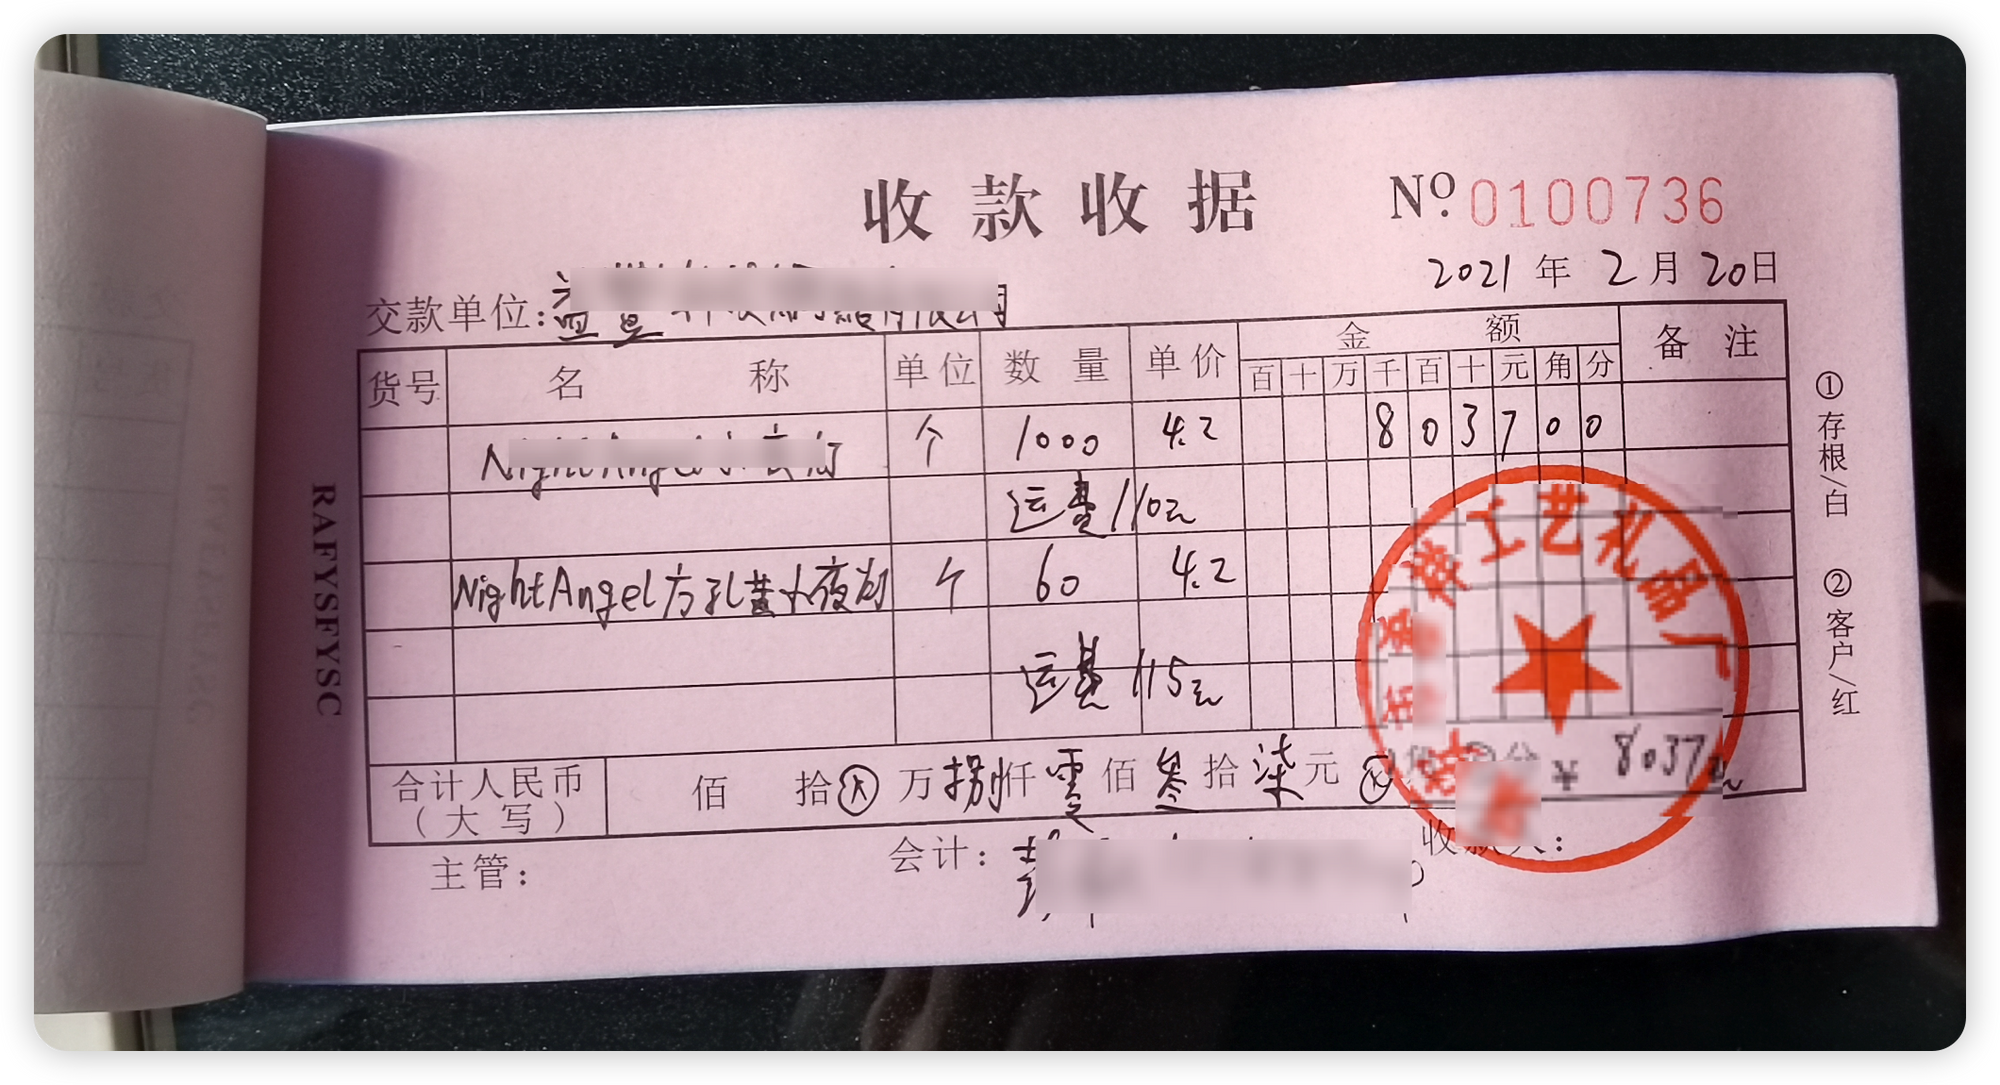 收款收据 Nº 0100736
2021 年 2 月 20 日
交款单位:
货号 名称 单位 数量 单价 金额 备注
百 十 万 千 百 十 元 角 分
NightAngel 个 1000 4.2 8 0 3 7 0 0
运费110元
NightAngel方孔黄小夜灯 个 60 4.2
运费115元
合计人民币(大写) 佰 拾 万 捌 仟 零 佰 叁 拾 柒 元 ¥ 8037元
主管: 会计: 收款人:
①存根/白 ②客户/红
RAFYSFYSC
工艺礼品厂